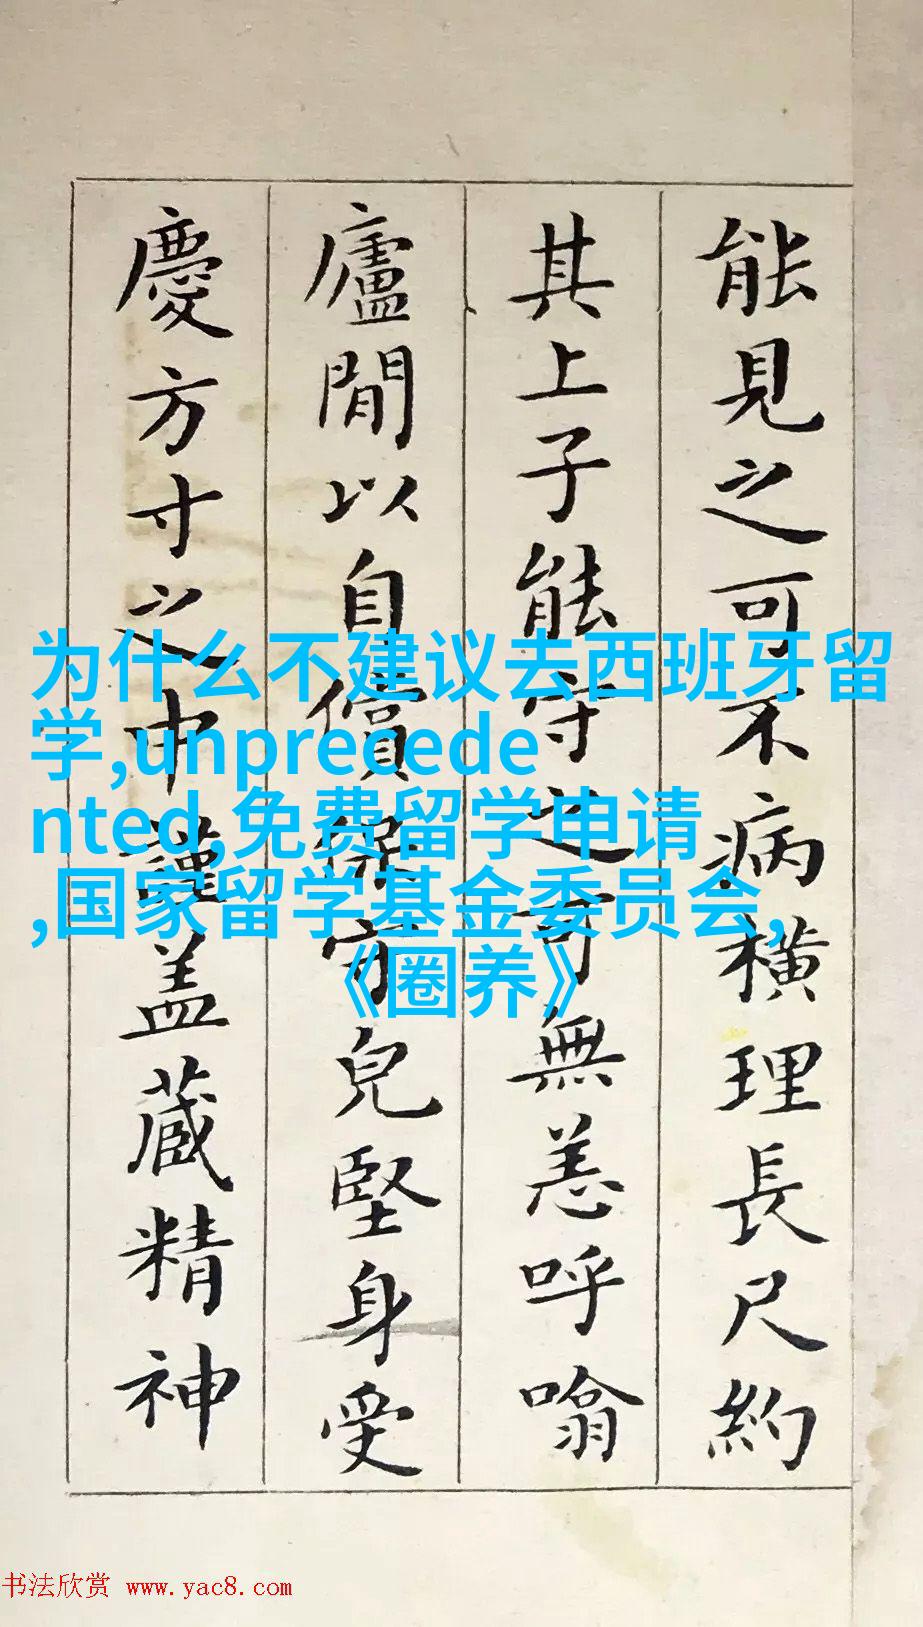 能見之可不病橫理長尺約
其上子能守之可無恙呼噏
廬閒以自償保守兒堅身受
慶方寸之中謹盖藏精神
为什么不建议去西班牙留
学,unprecede
nted,免费留学申请
,国家留学基金委员会,
《圈养》
书法欣赏 www.yac8.com